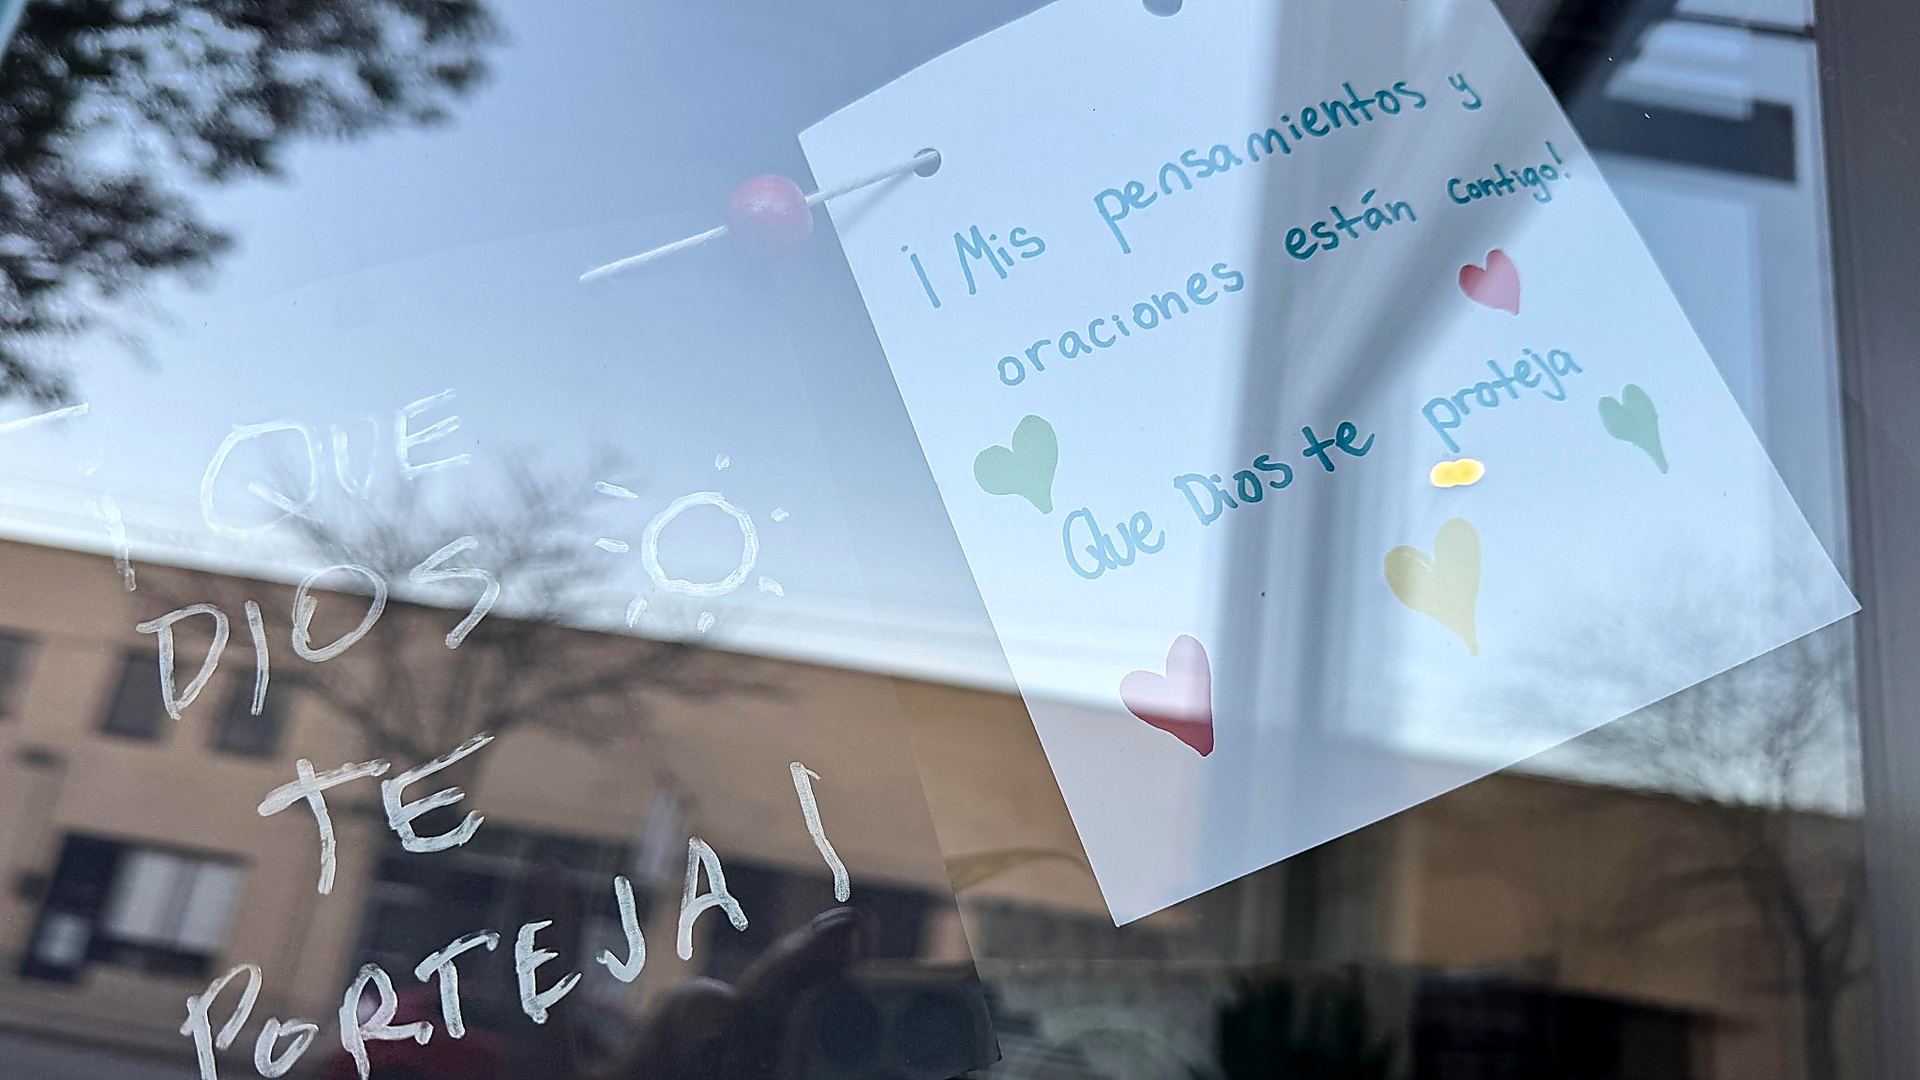 ¡QUE
DIOS
TE
PORTEJA!
¡Mis pensamientos y
oraciones están contigo!
Que Dios te proteja